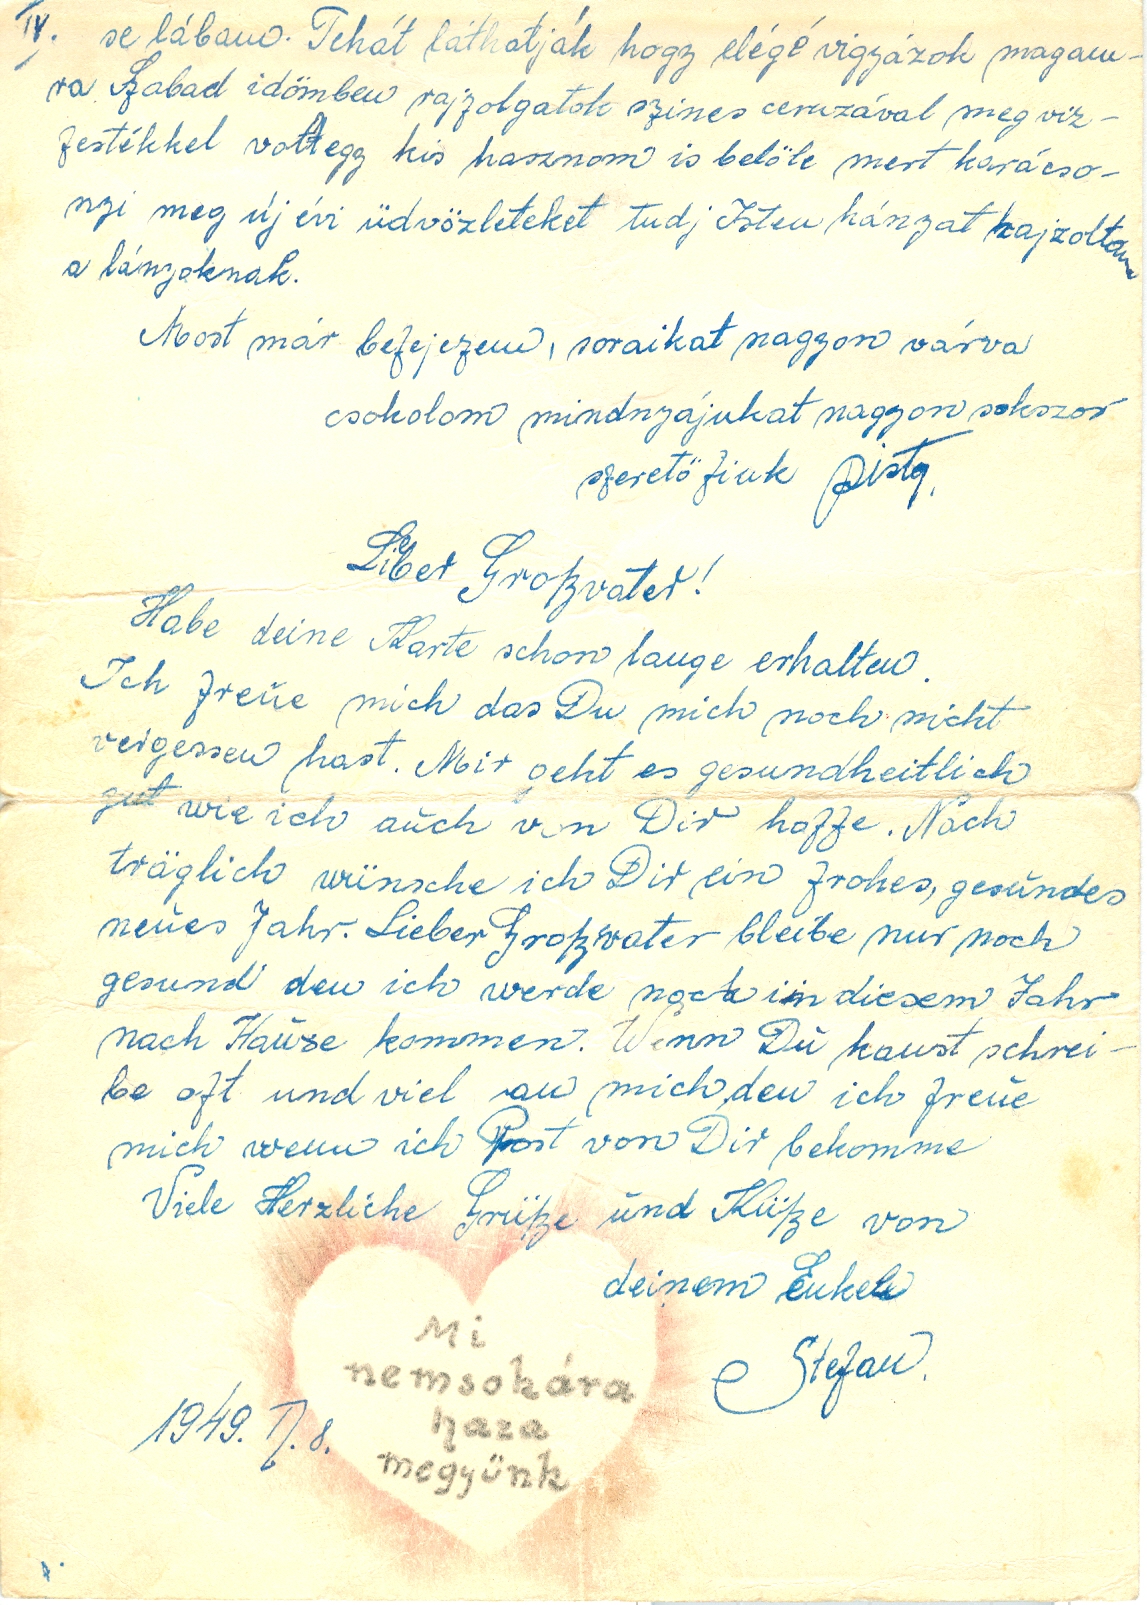 IV. se lábam. Tehát láthatják hogy elégé vigyázok magam-
ra Szabad időmben rajzolgatok szines ceruzával meg viz-
festékkel volt egy kis hasznom is belőle mert karácso-
nyi meg új évi üdvözleteket tudj Isten hányat rajzoltam
a lányoknak.
Most már befejezem, soraikat nagyon várva
csokolom mindnyájukat nagyon sokszor
szerető fiuk Pista.
Lieber Großvater!
Habe deine Karte schon lange erhalten.
Ich freue mich das Du mich noch nicht
vergessen hast. Mir geht es gesundheitlich
gut wie ich auch von Dir hoffe. Nach
träglich wünsche ich Dir ein frohes, gesundes
neues Jahr. Lieber Großvater bleibe nur noch
gesund den ich werde noch in diesem Jahr
nach Hause kommen. Wenn Du kanst schrei-
be oft und viel an mich, den ich freue
mich wenn ich Post von Dir bekomme
Viele Herzliche Grüße und Küße von
deinem Enkel
Stefan.
Mi
nemsokára
haza
megyünk
1949. II. 8.